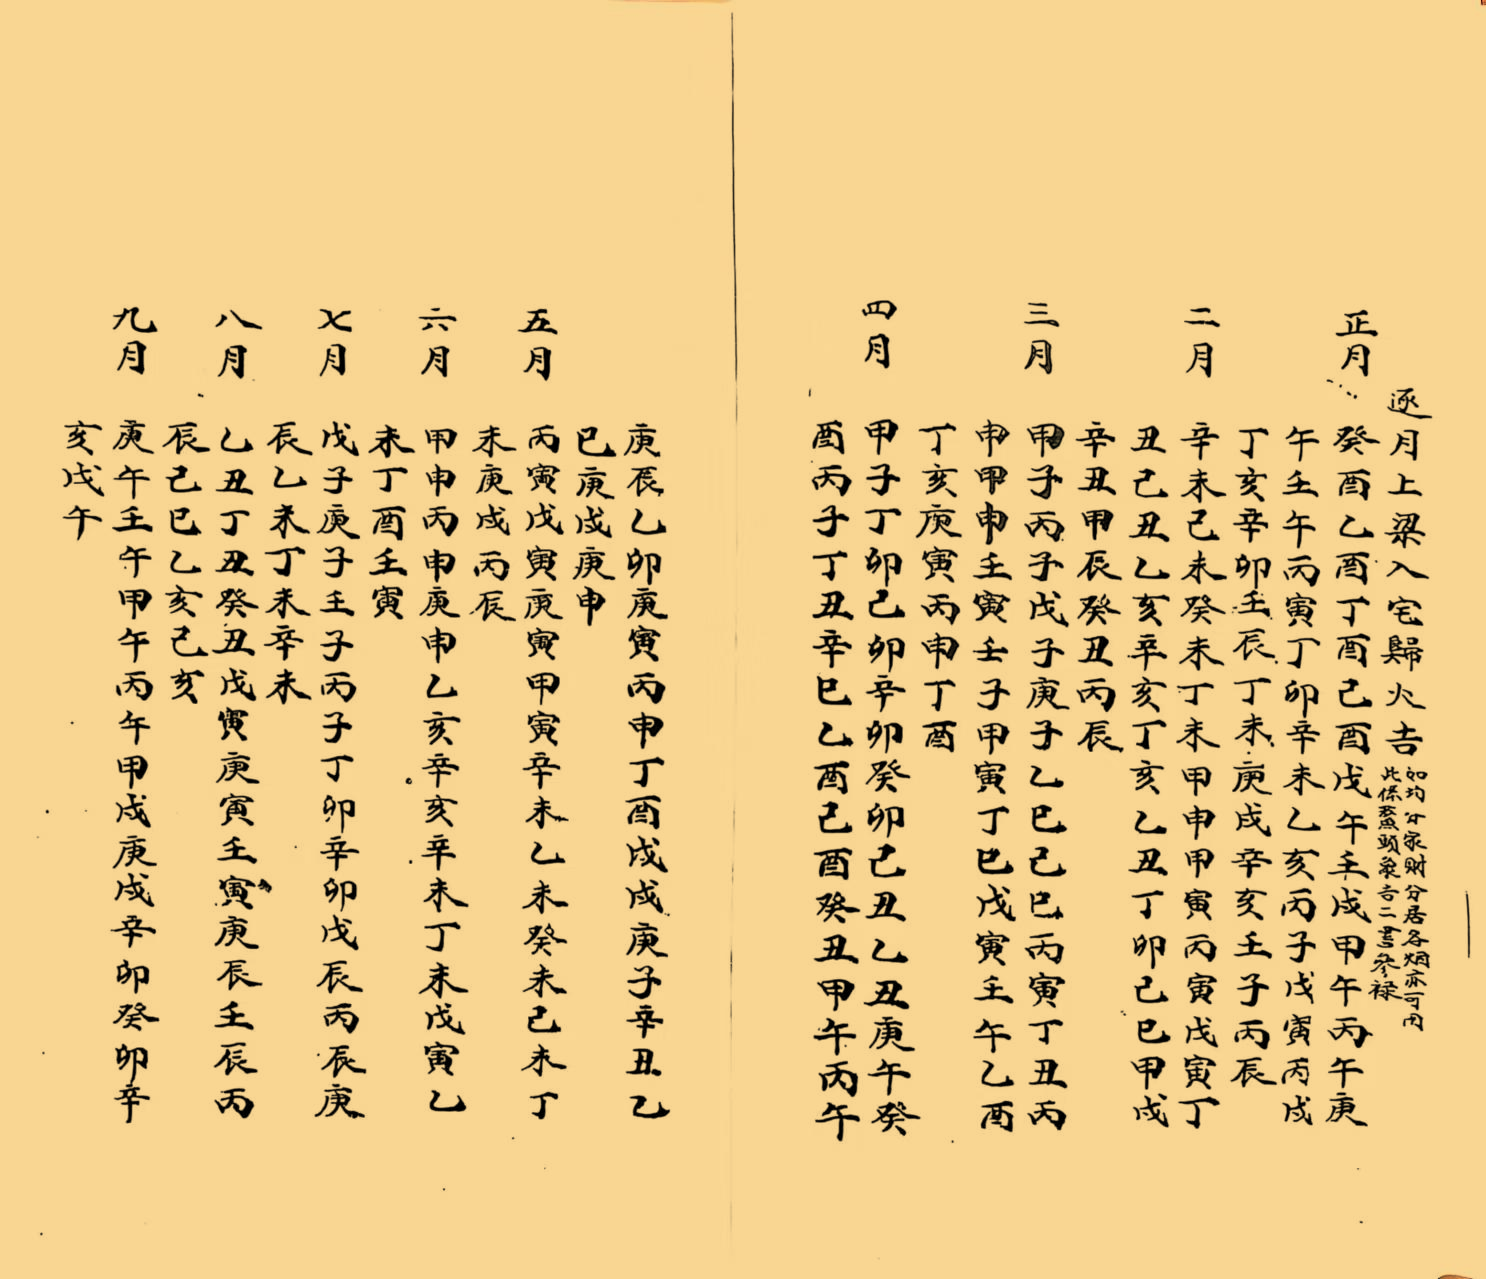 逐月上梁入宅歸火吉
如均分家財分居各烟亦可用
此係鰲頭象吉二書參祿
正月 癸酉乙酉丁酉己酉戊午壬戌甲午丙午庚
午壬午丙寅丁卯辛未乙亥丙子戊寅丙戌
丁亥辛卯壬辰丁未庚戌辛亥壬子丙辰
二月 辛未己未癸未丁未甲申甲寅丙寅戊寅丁
丑己丑乙亥辛亥丁亥乙丑丁卯己巳甲戌
辛丑甲辰癸丑丙辰
三月 甲子丙子戊子庚子乙巳己巳丙寅丁丑丙
申甲申壬寅壬子甲寅丁巳戊寅壬午乙酉
丁亥庚寅丙申丁酉
四月 甲子丁卯己卯辛卯癸卯己丑乙丑庚午癸
酉丙子丁丑辛巳乙酉己酉癸丑甲午丙午
庚辰乙卯庚寅丙申丁酉戊戌庚子辛丑乙
巳庚戌庚申
五月 丙寅戊寅庚寅甲寅辛未乙未癸未己未丁
未庚戌丙辰
六月 甲申丙申庚申乙亥辛亥辛未丁未戊寅乙
未丁酉壬寅
七月 戊子庚子壬子丙子丁卯辛卯戊辰丙辰庚
辰乙未丁未辛未
八月 乙丑丁丑癸丑戊寅庚寅壬寅庚辰壬辰丙
辰己巳乙亥己亥
九月 庚午壬午甲午丙午甲戌庚戌辛卯癸卯辛
亥戊午